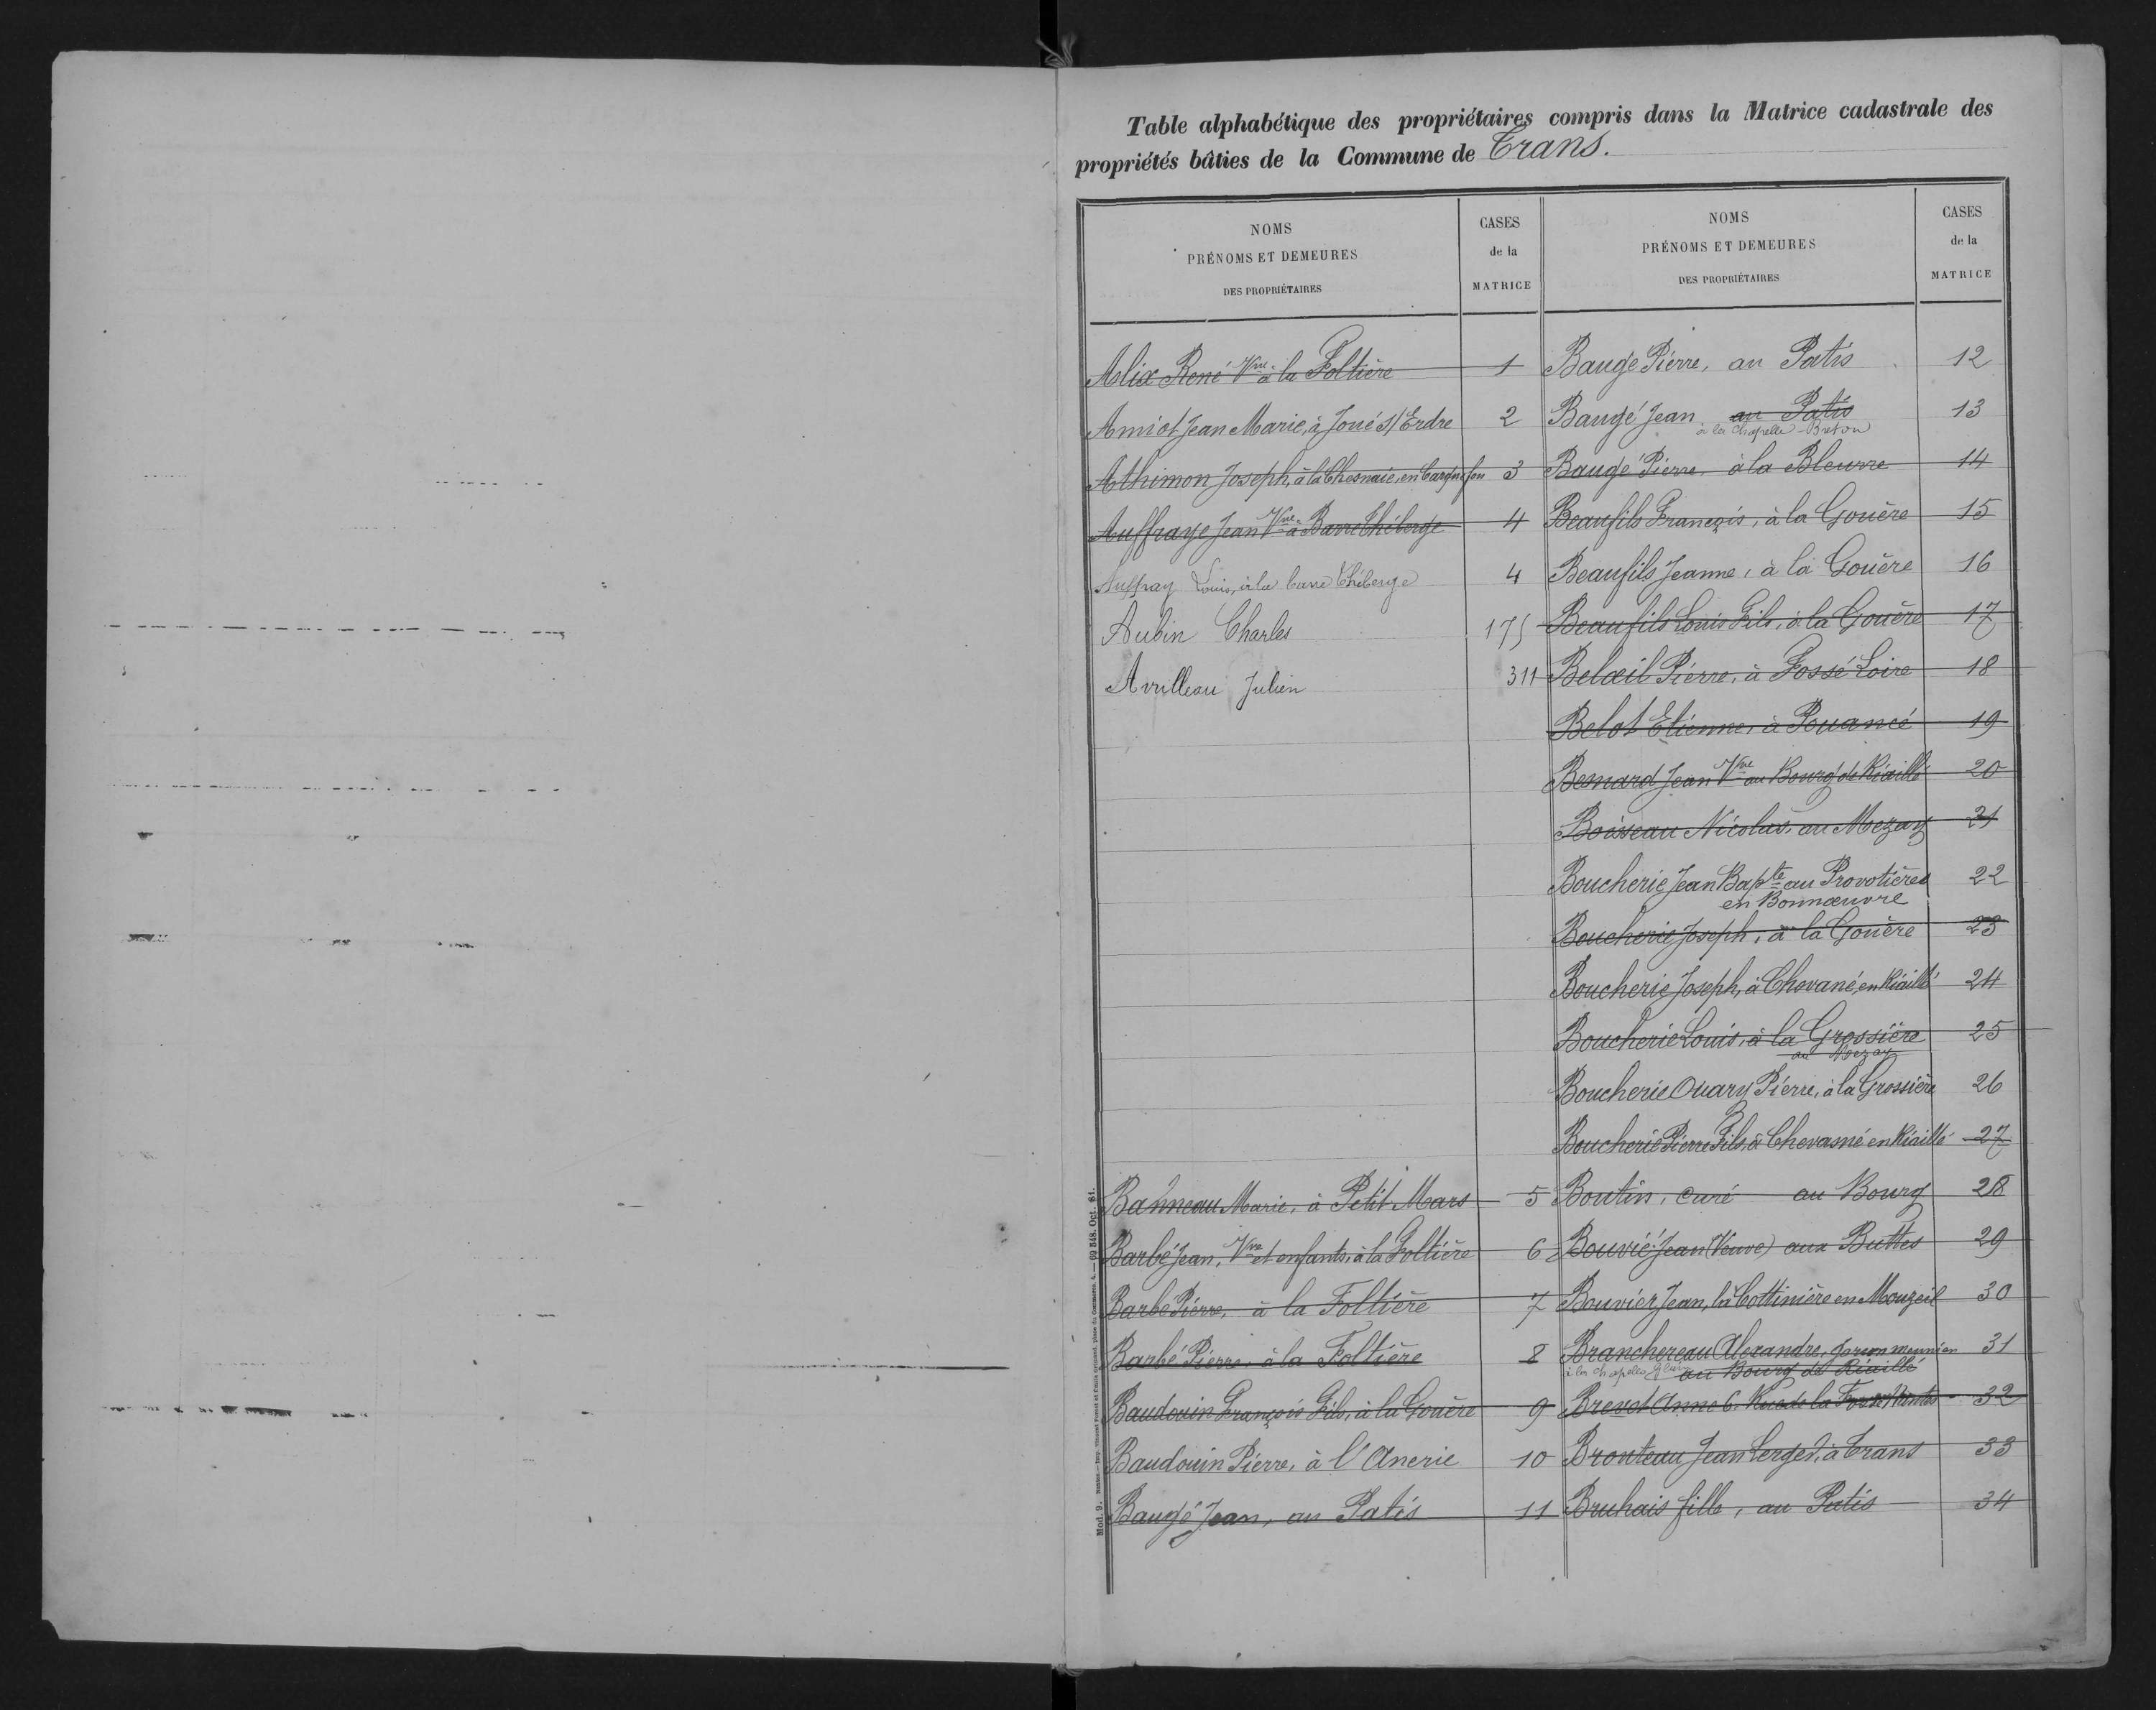 Table alphabétique des propriétaires compris dans la Matrice cadastrale des
propriétés bâties de la Commune de Trans.
NOMS
PRÉNOMS ET DEMEURES
DES PROPRIÉTAIRES
CASES
de la
MATRICE
Alix René Vve à la Foltière 1
Amiot Jean Marie, à Joué s/ Erdre 2
Athimon Joseph, à la Chesnaie, en Carquefou 3
Auffraye Jean Vve à Barre Théberge 4
Auffray Louis, à la barre Théberge 4
Aubin Charles 175
Avrilleau Julien 311
Banneau Marie, à Petit Mars 5
Barbé Jean, Vve et enfants, à la Foltière 6
Barbé Pierre, à la Foltière 7
Barbé Pierre, à la Foltière 8
Baudouin François Fils, à la Gouère 9
Baudouin Pierre, à l'Anerie 10
Baugé Jean, au Patis 11
NOMS
PRÉNOMS ET DEMEURES
DES PROPRIÉTAIRES
CASES
de la
MATRICE
Baugé Pierre, au Patis 12
Baugé Jean au Patis 13
à la Chapelle-Breton
Baugé Pierre, à la Bleurre 14
Beaufils François, à la Gouère 15
Beaufils Jeanne, à la Gouère 16
Beaufils Louis Fils, à la Gouère 17
Belœil Pierre, à Fossé Loire 18
Belot Etienne, à Pouancé 19
Besnard Jean Vve au Bourg de Riaillé 20
Boisseau Nicolas, au Mezay 21
Boucherie Jean Bapte au Provotières 22
en Bonnœuvre
Boucherie Joseph, à la Gouère 23
Boucherie Joseph, à Chevané, en Riaillé 24
Boucherie Louis, à la Grossière 25
au Mezay
Boucherie Ouary Pierre, à la Grossière 26
Boucherie Pierre Fils, à Chevasné en Riaillé 27
Boutin, curé au Bourg 28
Bouvié Jean (Veuve) aux Buttes 29
Bouvier Jean, la Cottinière en Mouzeil 30
Branchereau Alexandre, garçon meunier 31
à la chapelle Glain au Bourg de Riaillé
Brevet Anne 6. Rue de la Fosse Nantes 32
Bronteau Jean Serges, à Trans 33
Bruhais fille, au Patis 34